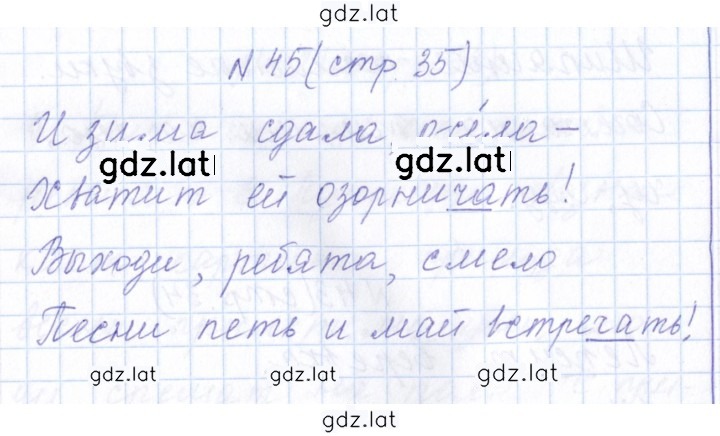 gdz.lat
N 45 (стр. 35)
И зима сдала дела –
gdz.lat gdz.lat
Хватит ей озорничать!
Выходи, ребята, смело
Песни петь и май встречать!
gdz.lat gdz.lat gdz.lat
gdz.lat